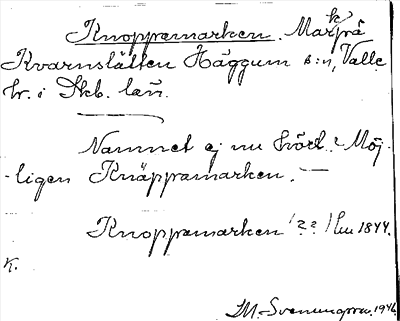 Knoppamarken. Mark på
Kvarnslätten Häggum s:n, Valle
hr. i Skb. län.
Namnet ej nu hört. Möj-
-ligen Knäppamarken. —
Knoppamarken (??) Lm 1844.
K.
I M. Svenungsson. 1946